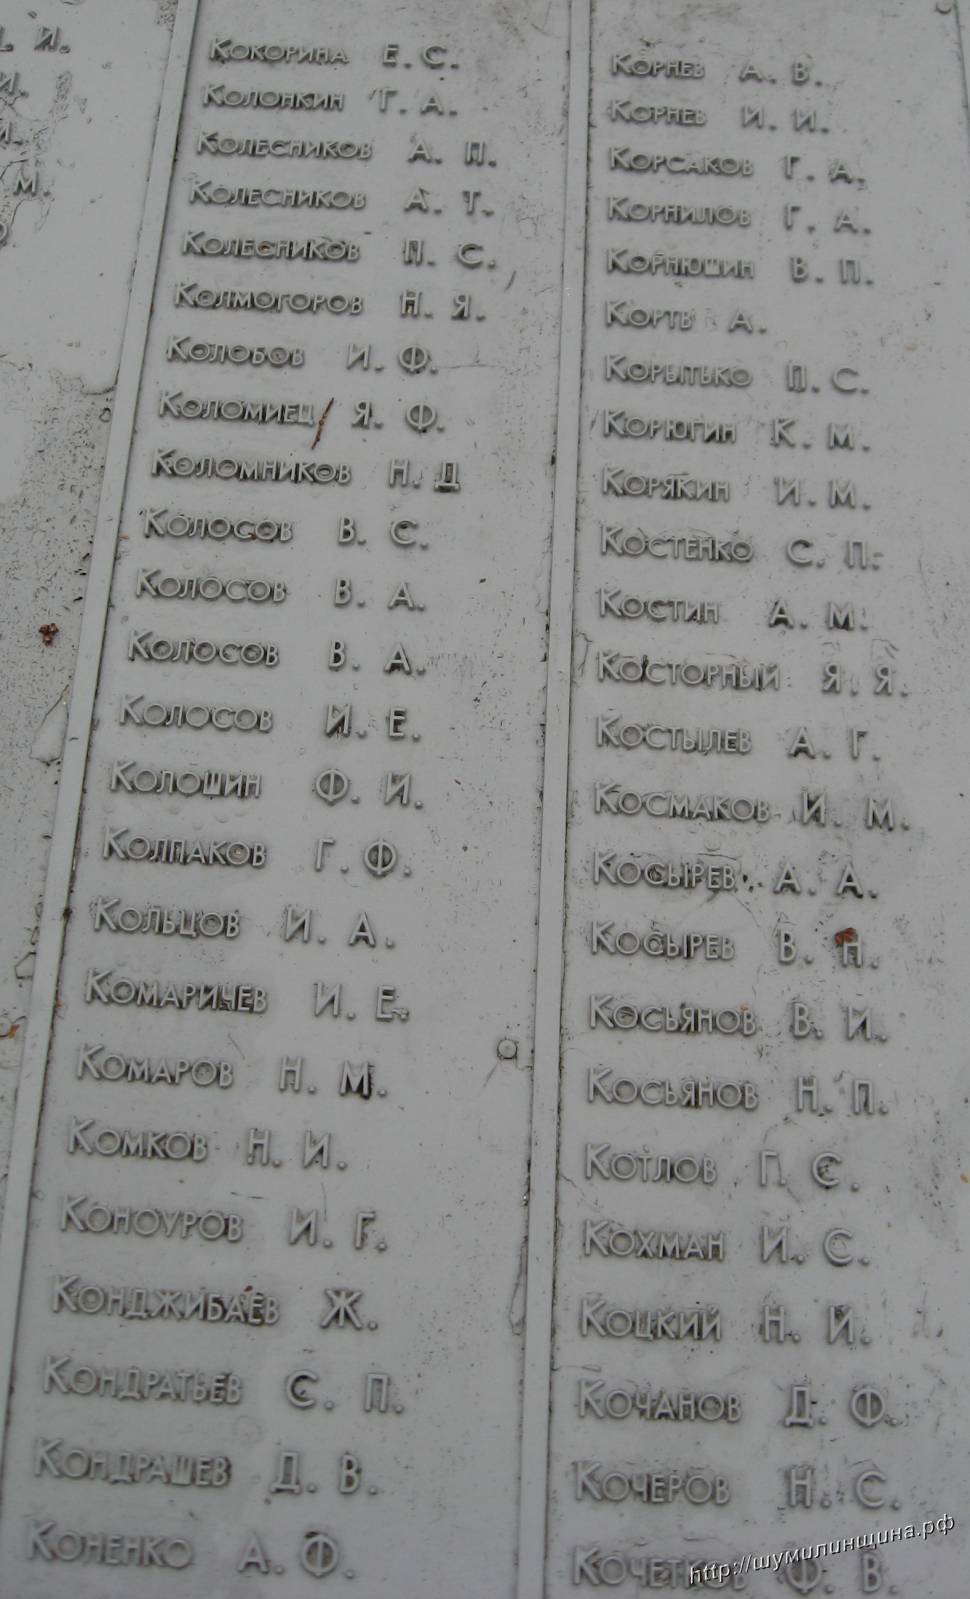 И.
И.
И.
М.
Кокорина Е. С.
Колонкин Г. А.
Колесников А. П.
Колесников А. Т.
Колесников П. С.
Колмогоров Н. Я.
Колобов И. Ф.
Коломиец Я. Ф.
Коломников Н. Д
Колосов В. С.
Колосов В. А.
Колосов В. А.
Колосов И. Е.
Колошин Ф. И.
Колпаков Г. Ф.
Кольцов И. А.
Комаричев И. Е.
Комаров Н. М.
Комков Н. И.
Коноуров И. Г.
Конджибаев Ж.
Кондратьев С. П.
Кондрашев Д. В.
Коненко А. Ф.
Корнев А. В.
Корнев И. И.
Корсаков Г. А.
Корнилов Г. А.
Корнюшин В. П.
Кортв А.
Корытько П. С.
Корюгин К. М.
Корякин И. М.
Костенко С. П.
Костин А. М.
Косторный Я. Я.
Костылев А. Г.
Космаков И. М.
Косырев А. А.
Косырев В. Н.
Косьянов В. И.
Косьянов Н. П.
Котлов Г. С.
Кохман И. С.
Коцкий Н. И.
Кочанов Д. Ф.
Кочеров Н. С.
Кочетков Ф. В.
http://шумилинщина.рф